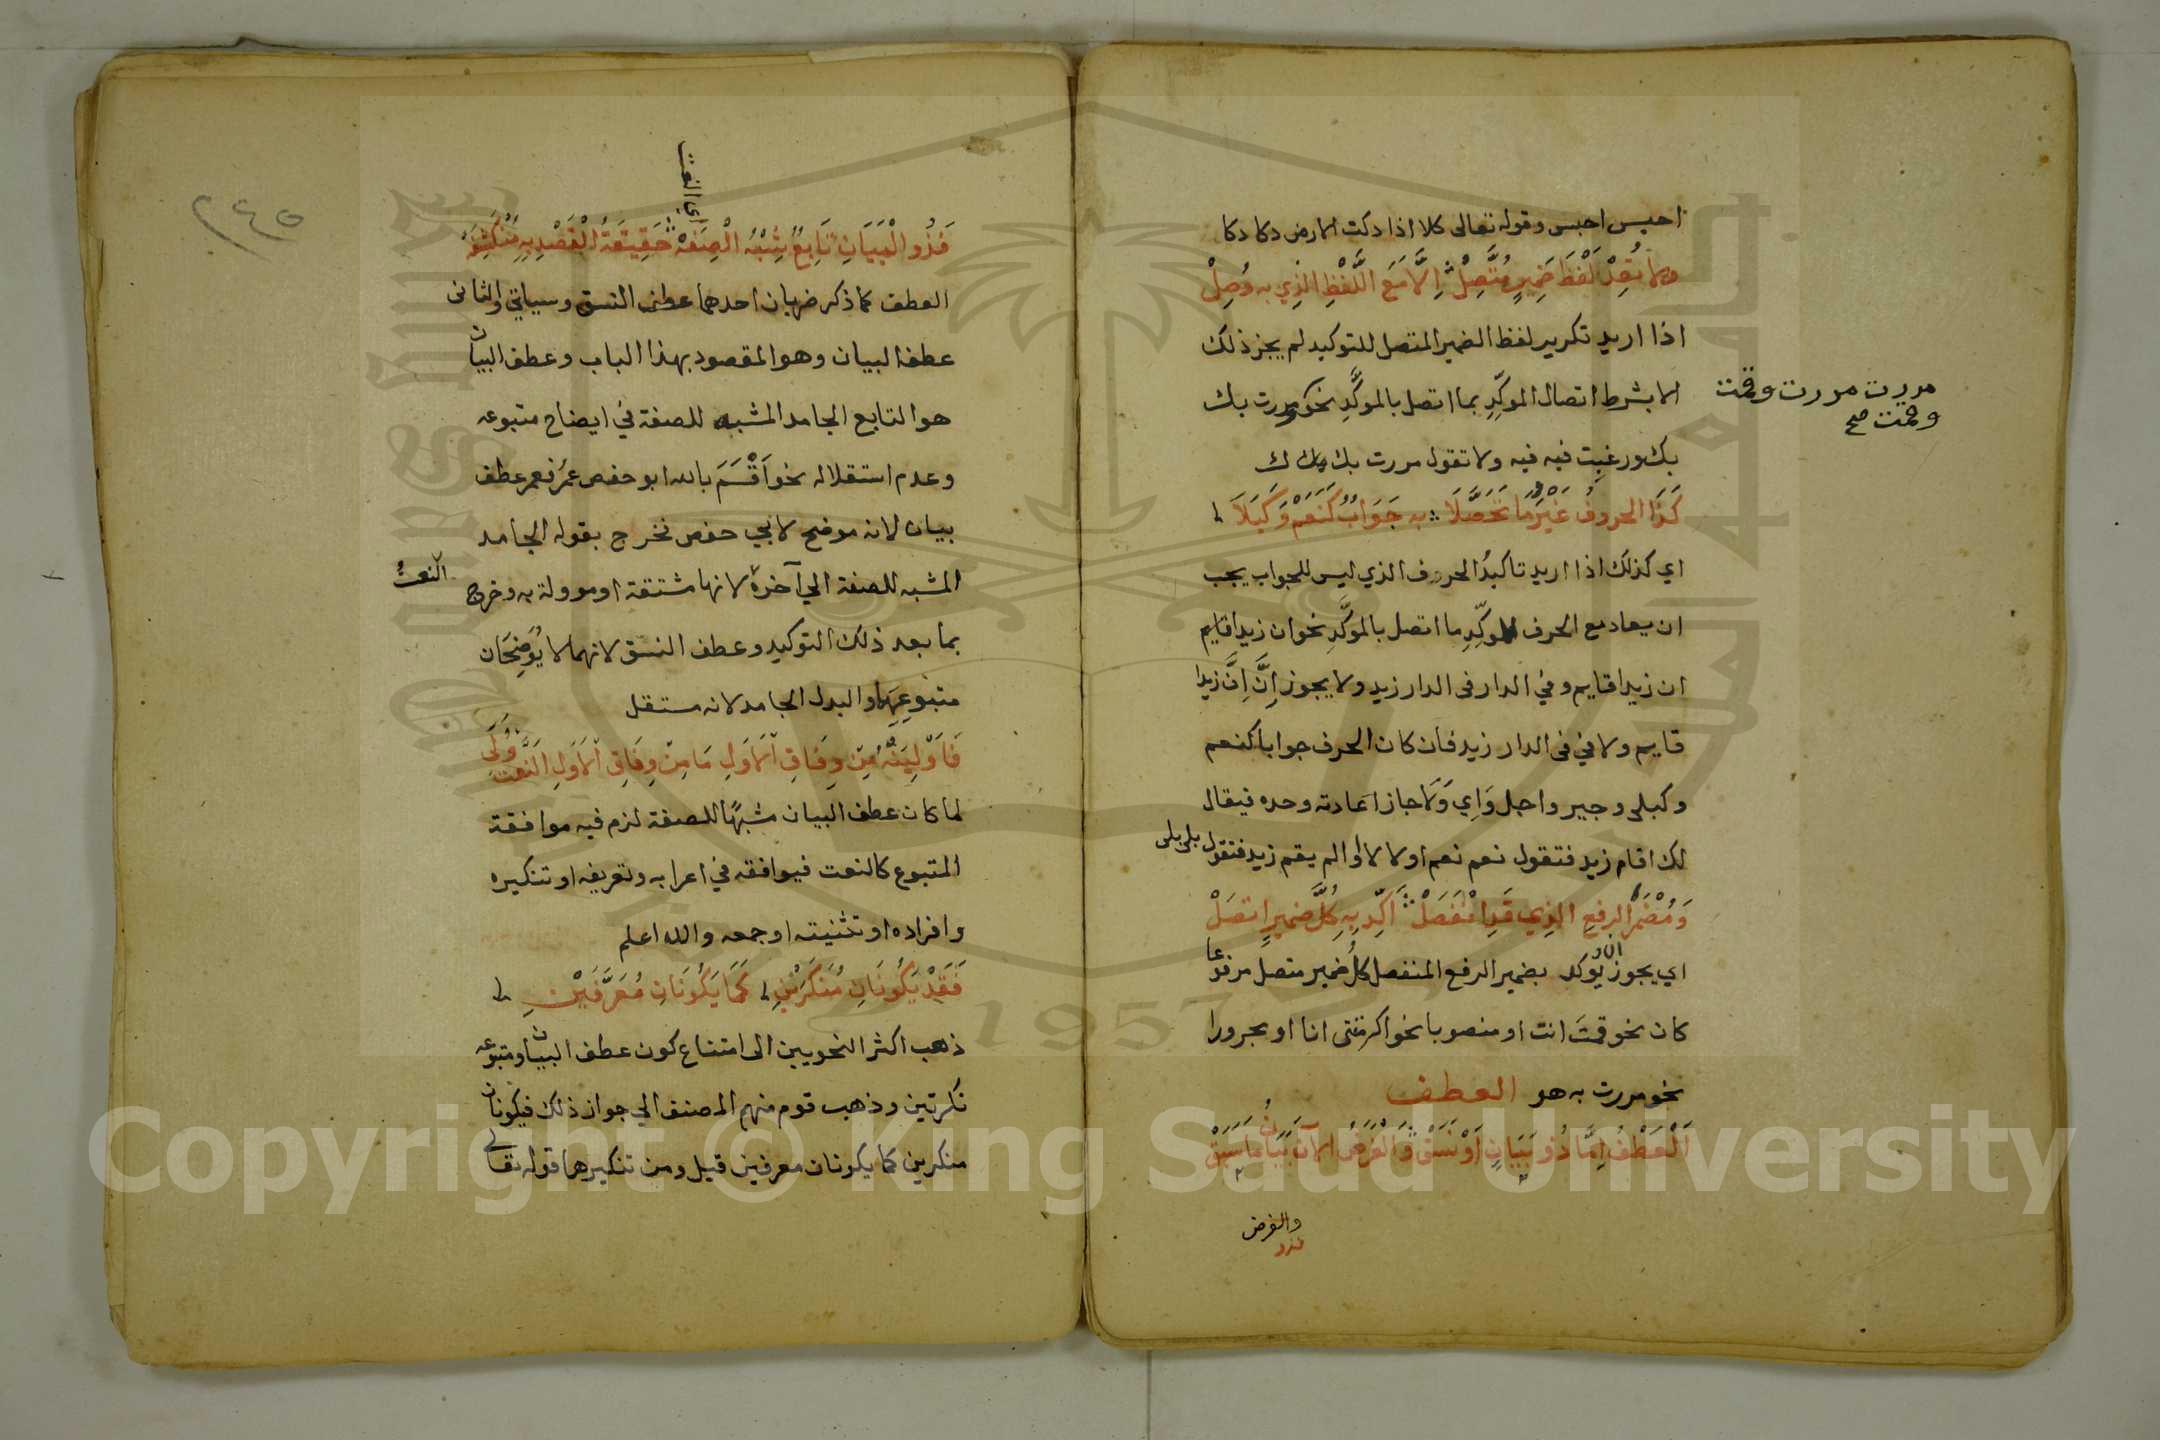 احبس احبس وقوله تعالى كلا اذا دكت الارض دكا دكا
ولا تُعِدْ لَفْظَ ضَمِيرٍ مُتَّصِلْ اِلَّا مَعَ اللَّفْظِ الذِي به وُصِلْ
اذا اريد تكرير لفظ الضمير المتصل للتوكيد لم يجز ذلك
الا بشرط اتصال الموكِّدِ بما اتصل بالموكَّدِ نحو مررت بك
مررت مررت وقمت
وقمت صح
بك ورغبت فيه فيه ولا تقول مررت بك ك
كَذَا الحروفُ غَيْرَ مَا تَحَصَّلَا به جَوَابٌ كَنَعَمْ وَكَبَلَى
اي كذلك اذا اريد تاكيدُ الحرف الذي ليس للجواب يجب
ان يعاد مع الحرف الموكِّدِ ما اتصل بالموكَّدِ نحو ان زيدا قايم
ان زيدا قايم وفي الدار فى الدار زيد ولا يجوز اِنَّ اِنَّ زيدا
قايم ولا في فى الدار زيد فان كان الحرف جوابا كنعم
وكبلى وجير واجل وَاِي وَلَا جاز اعادته وحده فيقال
لك اقام زيد فتقول نعم نعم او لا لا او الم يقم زيد فتقول بلى بلى
وَمُضْمَرُ الرفعِ الذِي قَدِ انْفَصَلْ اَكِّدْ بِهِ كُلَّ ضميرٍ اتصَلْ
اي يجوز ان يوكد بضمير الرفع المنفصل كلُ ضمير متصل مرفوعا
كان نحو قمتَ انت او منصوبا نحو اكرمتنى انا او مجرورا
نحو مررت به هو العطف
اَلْعَطْفُ اِمَّا ذُو بَيَانٍ اَوْ نَسَقْ وَالْغَرَضُ الآنَ بَيَانُ مَا سَبَقْ
والغرض
فذو
٢٤٥
اي النعت
فَذُو الْبَيَانِ تَابِعٌ شِبْهُ الْصِفَهْ حَقِيقَةُ الْقَصْدِ بِهِ مُنْكَشِفَهْ
العطف كما ذكر ضربان احدهما عطف النسق وسياتي والثانى
عطف البيان وهو المقصود بهذا الباب وعطف البيان
هو التابع الجامد المشبه للصفة في ايضاح متبوعه
وعدم استقلاله نحو اَقْسَمَ بالله ابو حفص عمرُ فعمر عطف
بيان لانه موضح لابي حفص فخرج بقوله الجامد
المشبه للصفة الي آخره لانها مشتقة او موولة به وخرج
النعتُ
بما بعد ذلك التوكيد وعطف النسق لانهما لا يُوَضِحَان
متبوعِهِمَا والبدل الجامد لانه مستقل
فَاَوْلِيَنْهُ مِنْ وِفَاقِ الَاوَلِ مَا مِنْ وِفَاقِ الَاوَلِ النَّعْت وُلِي
لما كان عطف البيان مشبهًا للصفة لزم فيه موافقة
المتبوع كالنعت فيوافقه في اعرابه وتعريفه او تنكيره
وافراده او تثنيته او جمعه والله اعلم
فَقَدْ يَكُونَانِ مُنَكَرَيْنِ كَمَا يَكُونَانِ مُعَرَّفَيْنِ
ذهب اكثر النحويين الى امتناع كون عطف البيان ومتبوعه
نكرتين وذهب قوم منهم المصنف الي جواز ذلك فيكونان
منكرين كما يكونان معرفين قيل ومن تنكيرهما قوله تعالي
Copyright © King Saud University
1957